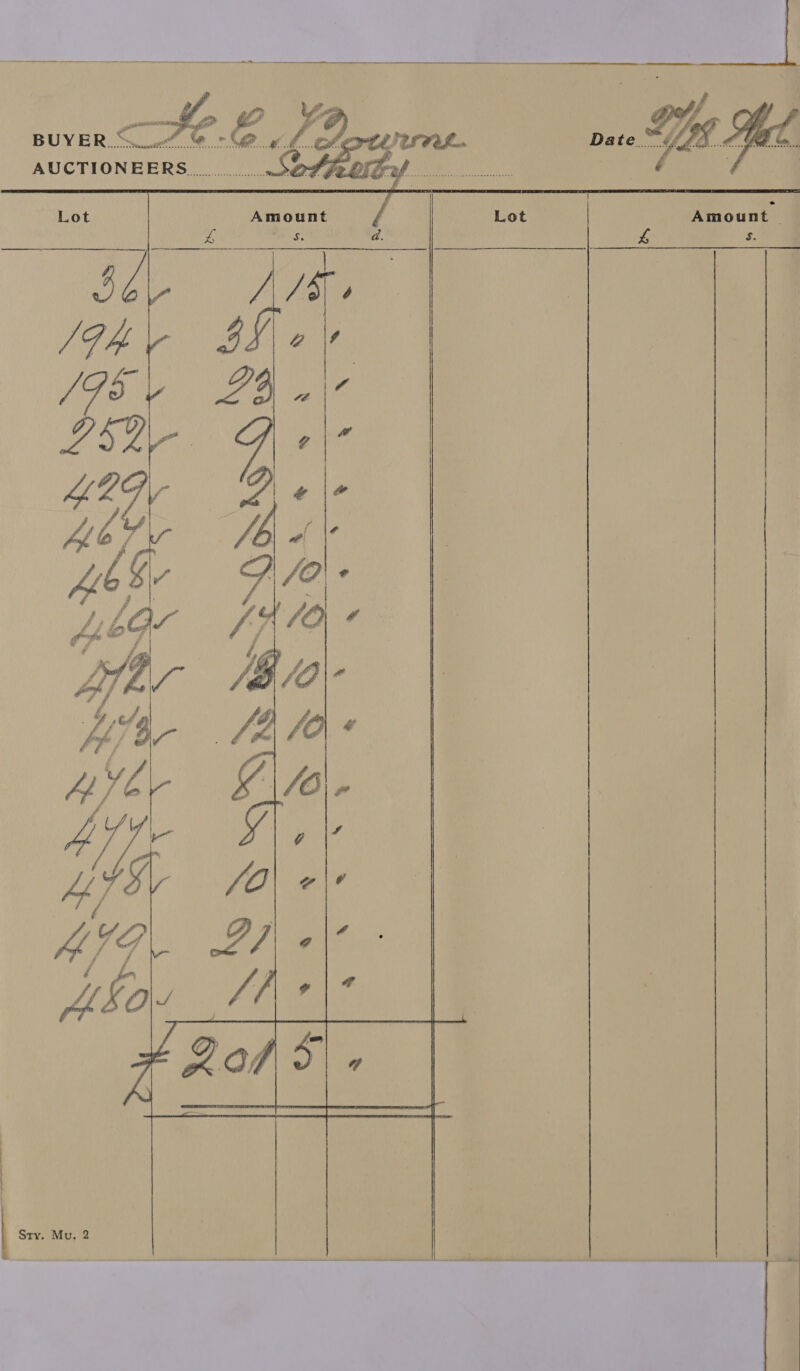 BUYER Date
AUCTIONEERS Sotheby
Lot Amount Lot Amount
£ s. d. £ s.
36 1 15 "
194 38 " "
195 23 " "
252 9 " "
429 2 " "
467 16 " "
468 9 10 "
469 17 10 "
472 13 10 "
473 12 10 "
476 8 10 "
477 8 " "
478 10 " "
479 21 " "
480 11 " "
£ 201 5 "
STY. MU. 2